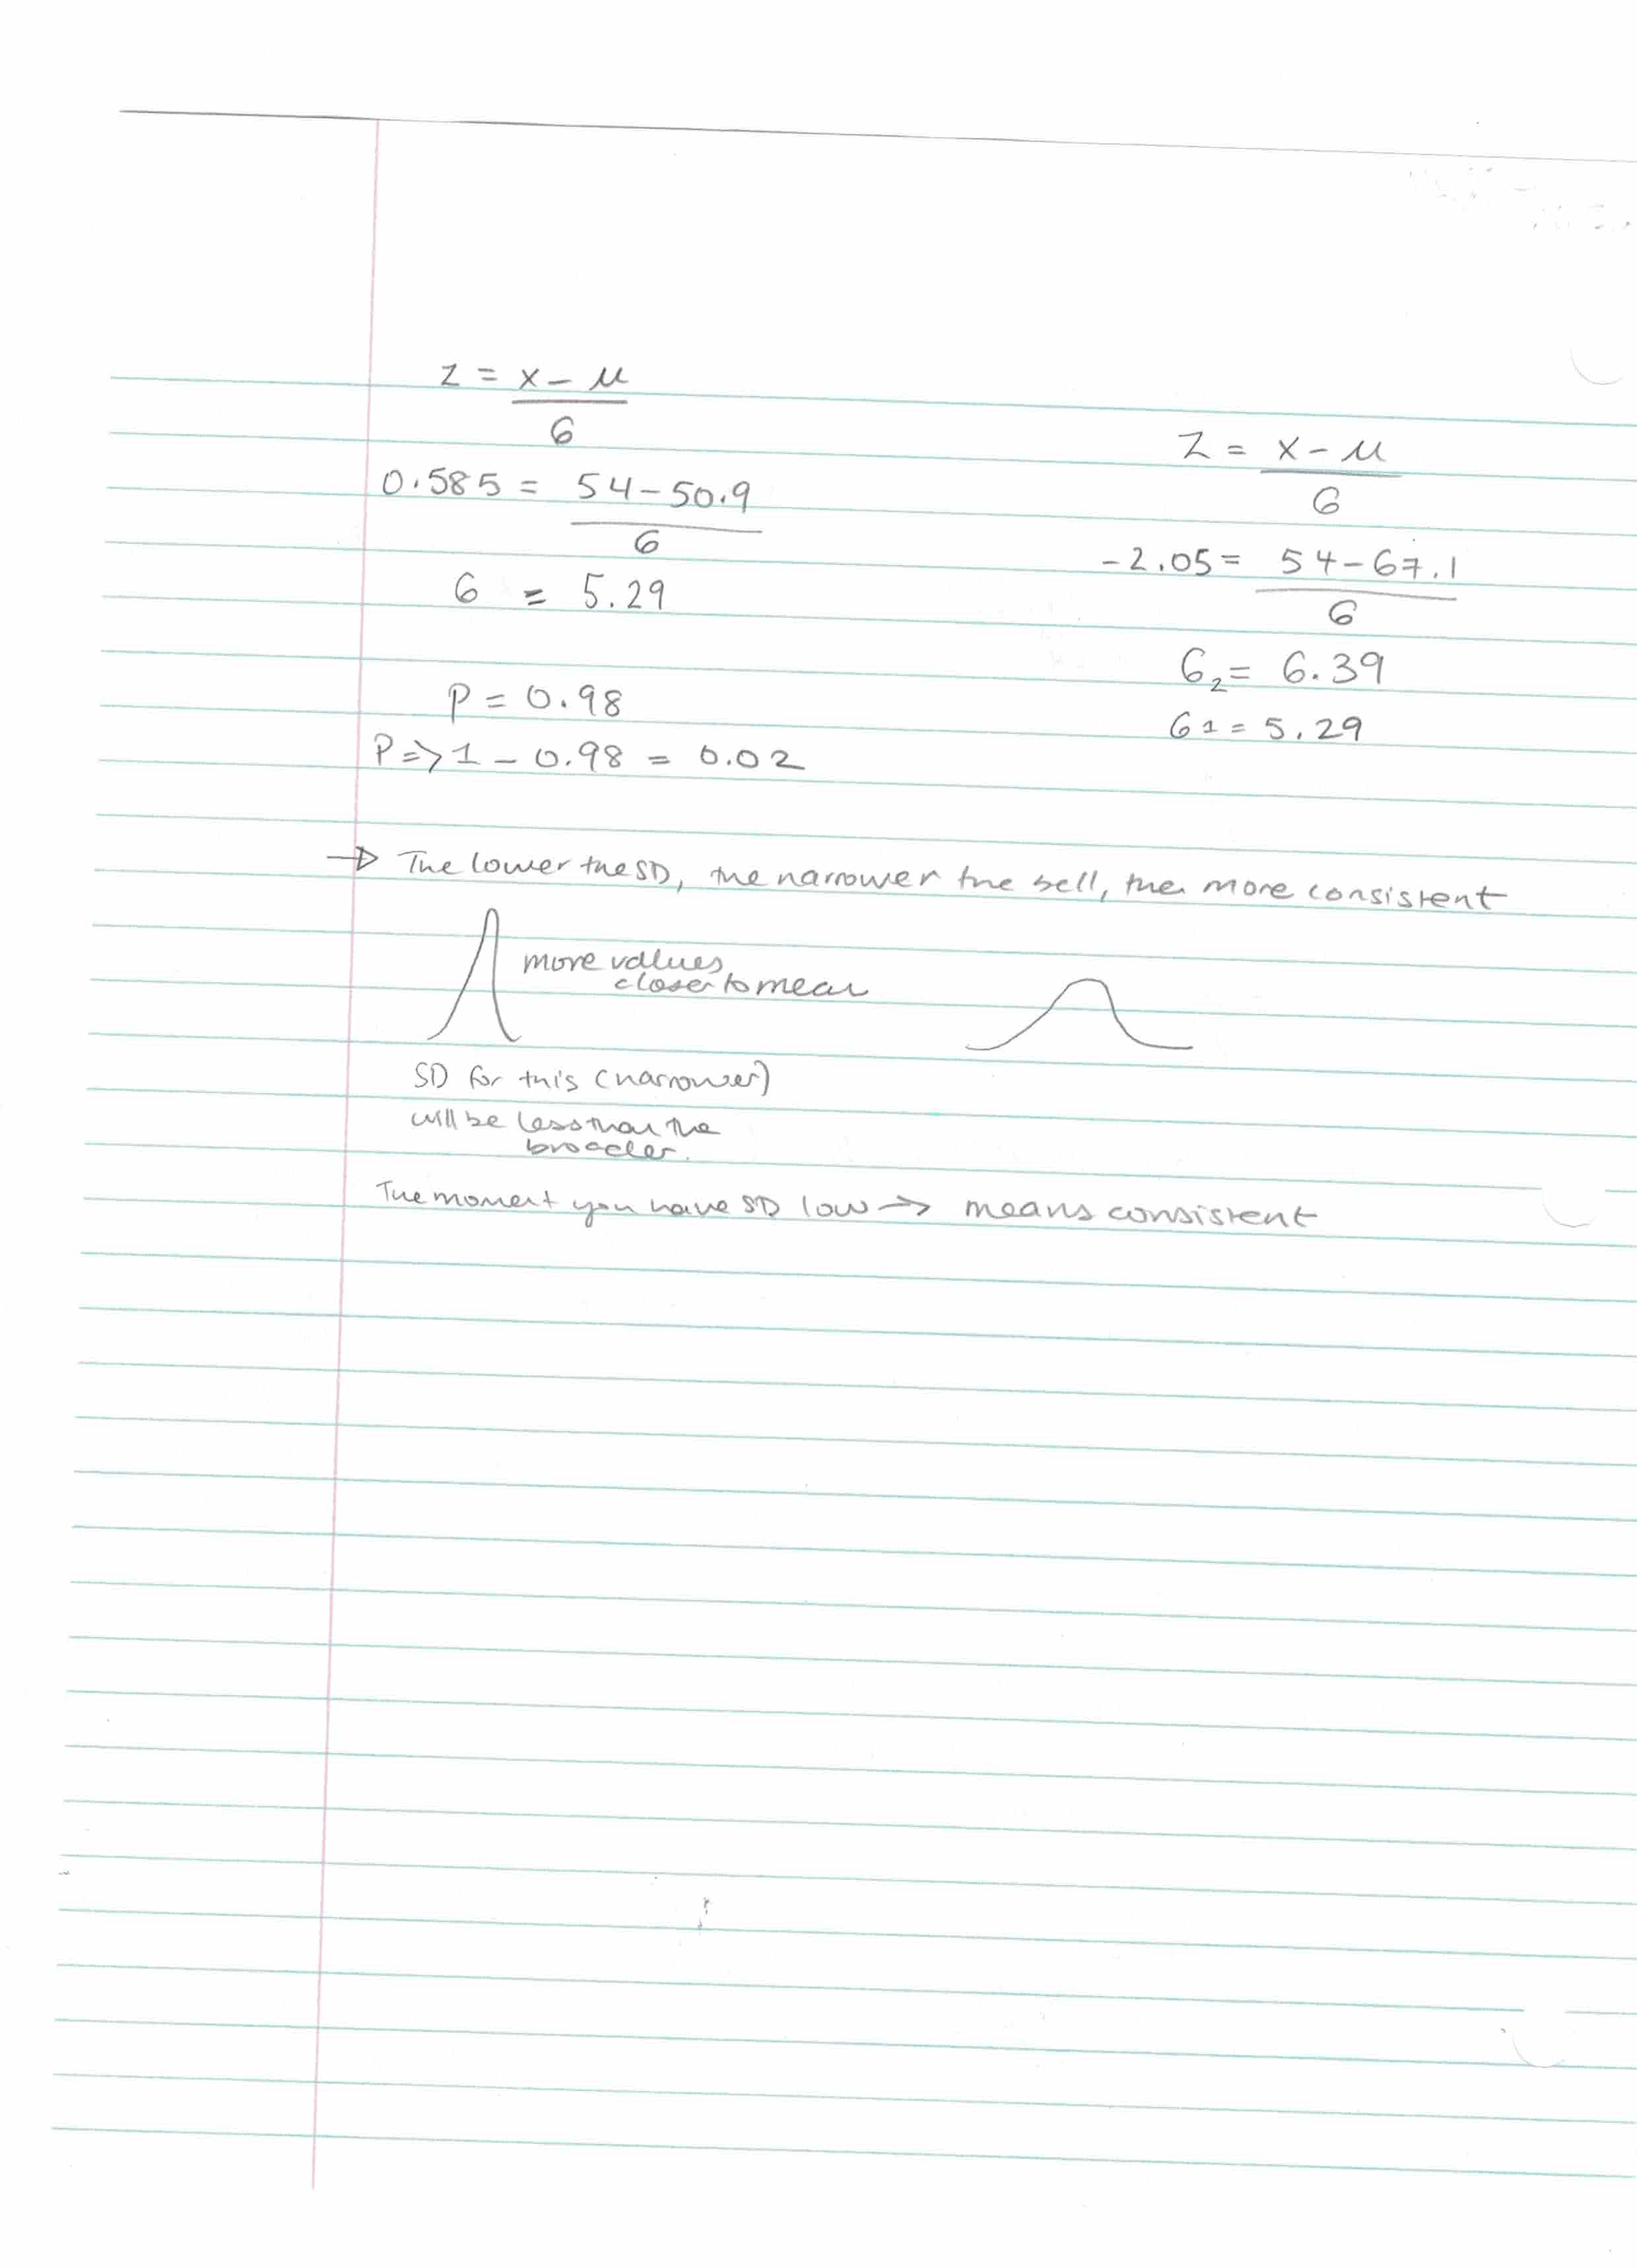 z = x - μ
σ
0.585 = 54 - 50.9
σ
σ = 5.29
P = 0.98
P => 1 - 0.98 = 0.02
Z = x - μ
σ
-2.05 = 54 - 67.1
σ
σ2 = 6.39
σ1 = 5.29
→ The lower the SD, the narrower the bell, the more consistent
more values
closer to mean
SD for this (narrower)
will be less than the
broader.
The moment you have SD low → means consistent